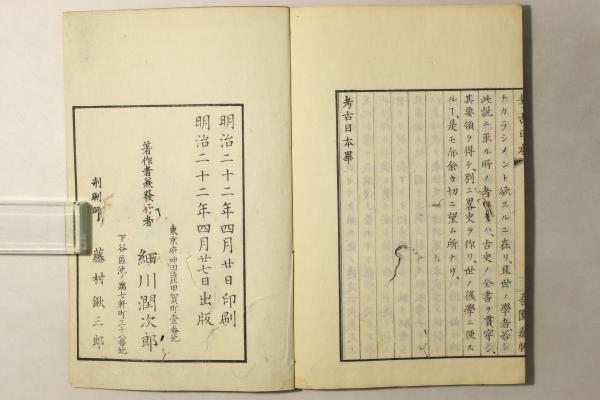 ナカラシメント欲スルニ在リ、且世ノ學者、若シ
此說ニ取ル所ノ者アラハ、古史ノ全書ヲ貫穿シ、
其要領ヲ得テ、別ニ畧史ヲ作リ、世ノ後學ニ便ス
ルコ、是モ亦余カ切ニ望ム所ナリ、
考古日本畢
明治二十二年四月廿日印刷
明治二十二年四月廿七日出版
東京府神田區北甲賀町壹番地
著作者兼發行者 細川潤次郎
下谷區池ノ端七軒町三十八番地
剞劂師 藤村鍬三郎